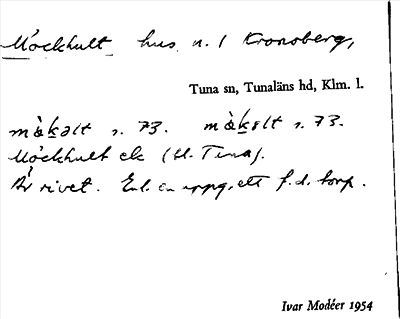 Mockhult hus n. 1 Kronoberg,
Tuna sn, Tunaläns hd, Klm. l.
mὰkəlt s. 73. mὰkəlt s. 73.
Mockhult ek (st. Tuna).
Är rivet. Enl. en uppg. ett f.d. torp.
Ivar Modéer 1954